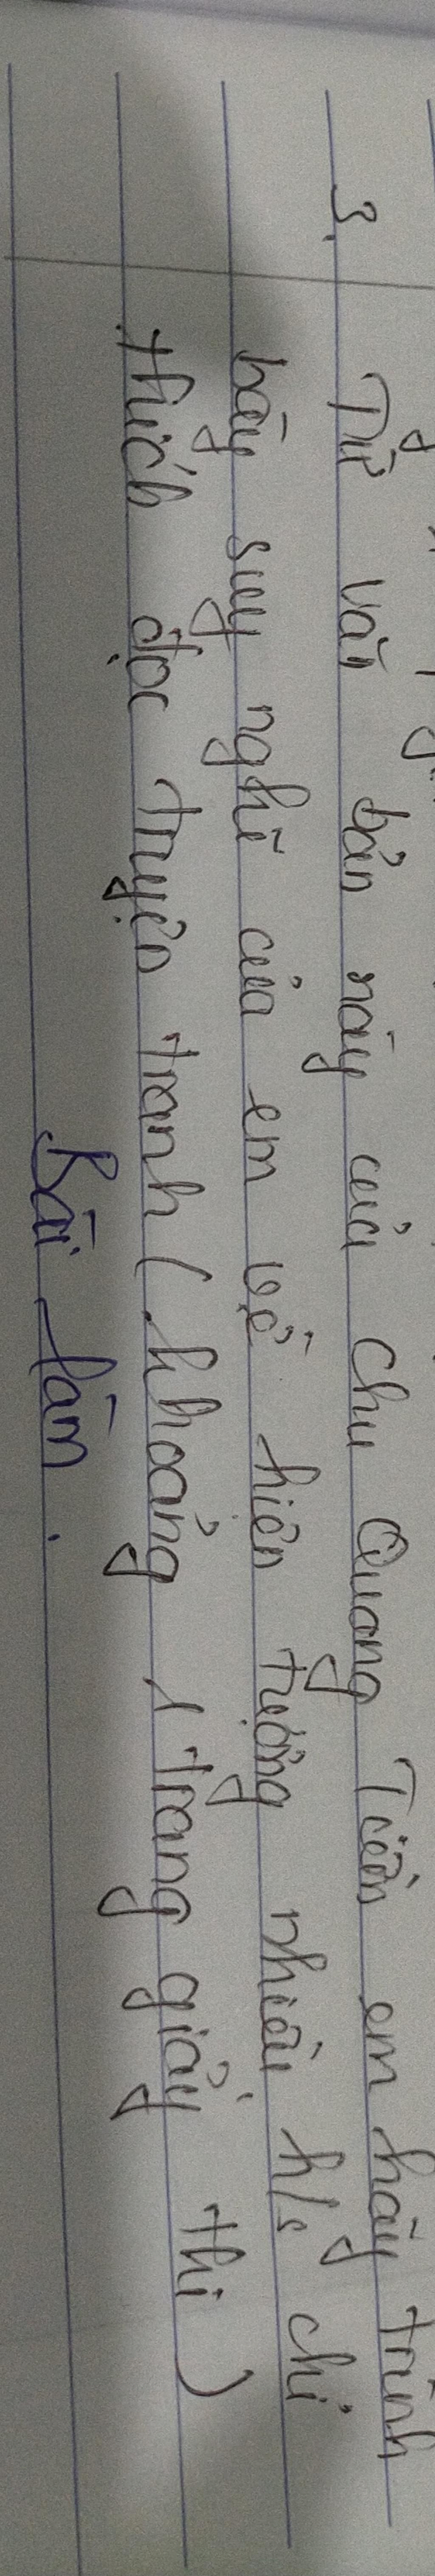 3. Từ văn bản này của Chu Quang Tiềm em hãy trình
bày suy nghĩ của em về hiện tượng nhiều h/s chỉ
thích đọc truyện tranh (khoảng 1 trang giấy thi)
Bài làm.